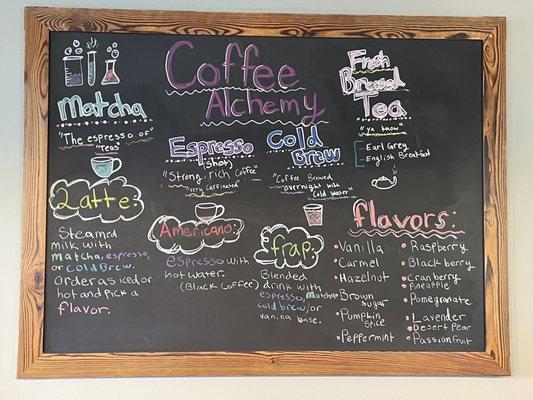 Coffee
Alchemy
Matcha
"The espresso of"
"Teas"
Espresso
(shot)
"Strong, rich Coffee"
"very Caffinated"
Cold
Brew
"Coffee Brewed
overnight with
Cold water"
Fresh
Brewed
Tea
"ya know"
Earl Grey
English Breakfast
Latte
Steamed
milk with
matcha, espresso,
or cold brew.
Order as iced or
hot and pick a
flavor.
Americano:
espresso with
hot water
(Black Coffee)
frap:
Blended
drink with
espresso, matcha
cold brew/or
vanilla base.
Flavors:
Vanilla
Carmel
Hazelnut
Brown
sugar
Pumpkin
spice
Peppermint
Raspberry
Blackberry
Cranberry
Pineapple
Pomegranate
Lavender
Desert Pear
Passion Fruit